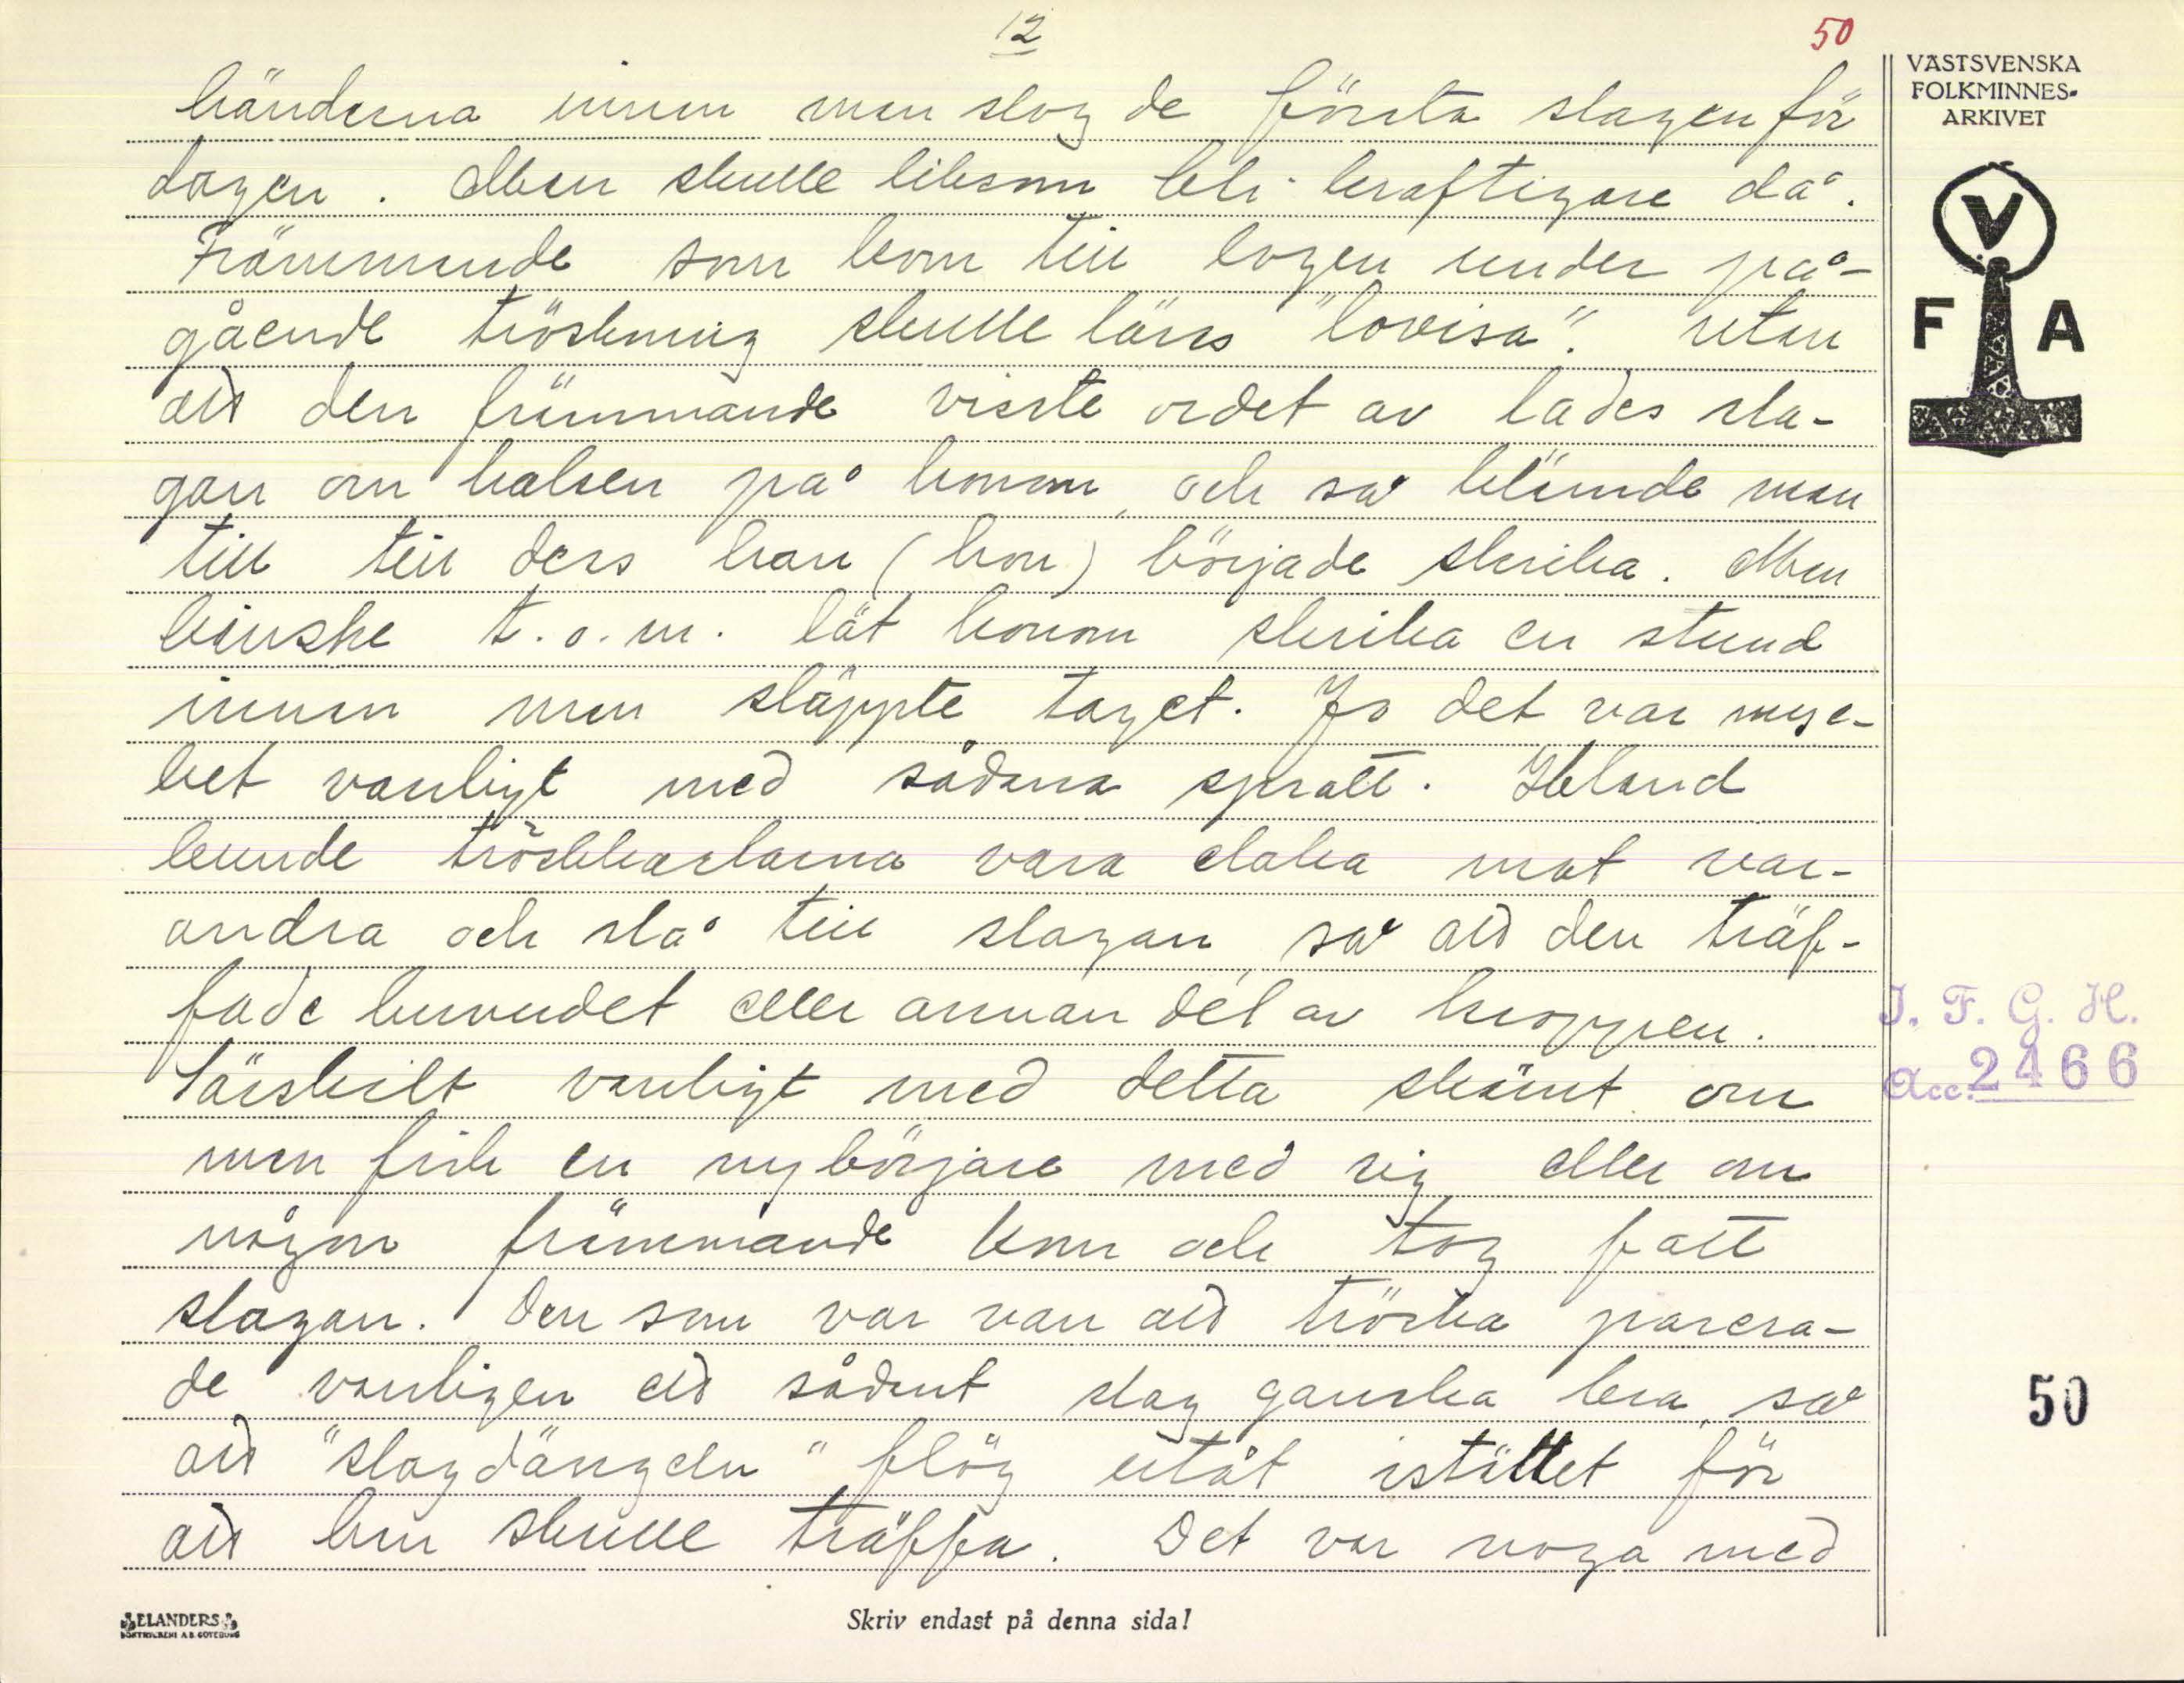 12
50
händerna innan man slog de första slagen för
dagen. Man skulle liksom bli kraftigare då.
Främmande som kom till logen under på-
gående tröskning skulle läras "lovisa". Utan
att den främmande visste ordet av lades sla-
gan om halsen på honom, och så klämde man
till till dess han (hon) började skrika. Man
kanske t.o.m. lät honom skrika en stund
innan man släppte taget. Jo det var myc-
ket vanligt med sådana spratt. Ibland
kunde tröskkarlarna vara elaka mot var-
andra och slå till slagan så att den träf-
fade huvudet eller annan del av kroppen.
Särskilt vanligt med detta skämt om
man fick en nybörjare med sig eller om
någon främmande kom och tog fatt
slagan. Den som var van att tröska parera-
de vanligen ett sådant slag ganska bra, så
att "slagdängeln" flög utåt istället för
att hon skulle träffa. Det var noga med
VÄSTSVENSKA
FOLKMINNES-
ARKIVET
V
F A
I. F. G. H.
Acc. 2466
50
ELANDERS
BOKTRYCKERI A.B. GÖTEBORG
Skriv endast på denna sida!